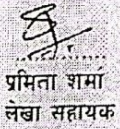 प्रमिता शर्मा
लेखा सहायक